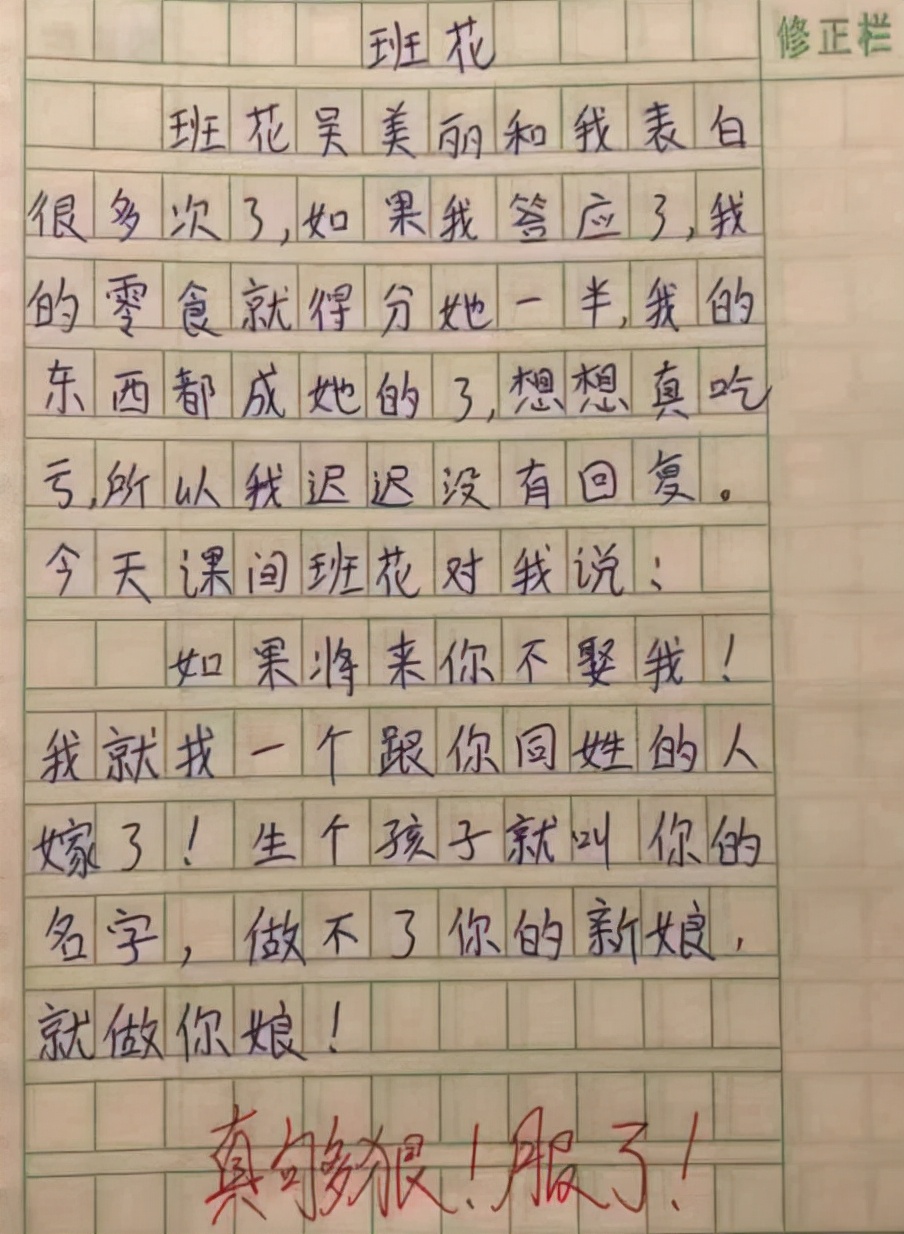 班花
修正栏
班花吴美丽和我表白
很多次了,如果我签应了,我
的零食就得分她一半,我的
东西都成她的了,想想真吃
亏,所以我迟迟没有回复。
今天课间班花对我说:
如果将来你不娶我!
我就找一个跟你同姓的人
嫁了!生个孩子就叫你的
名字,做不了你的新娘,
就做你娘!
真够狠!服了!